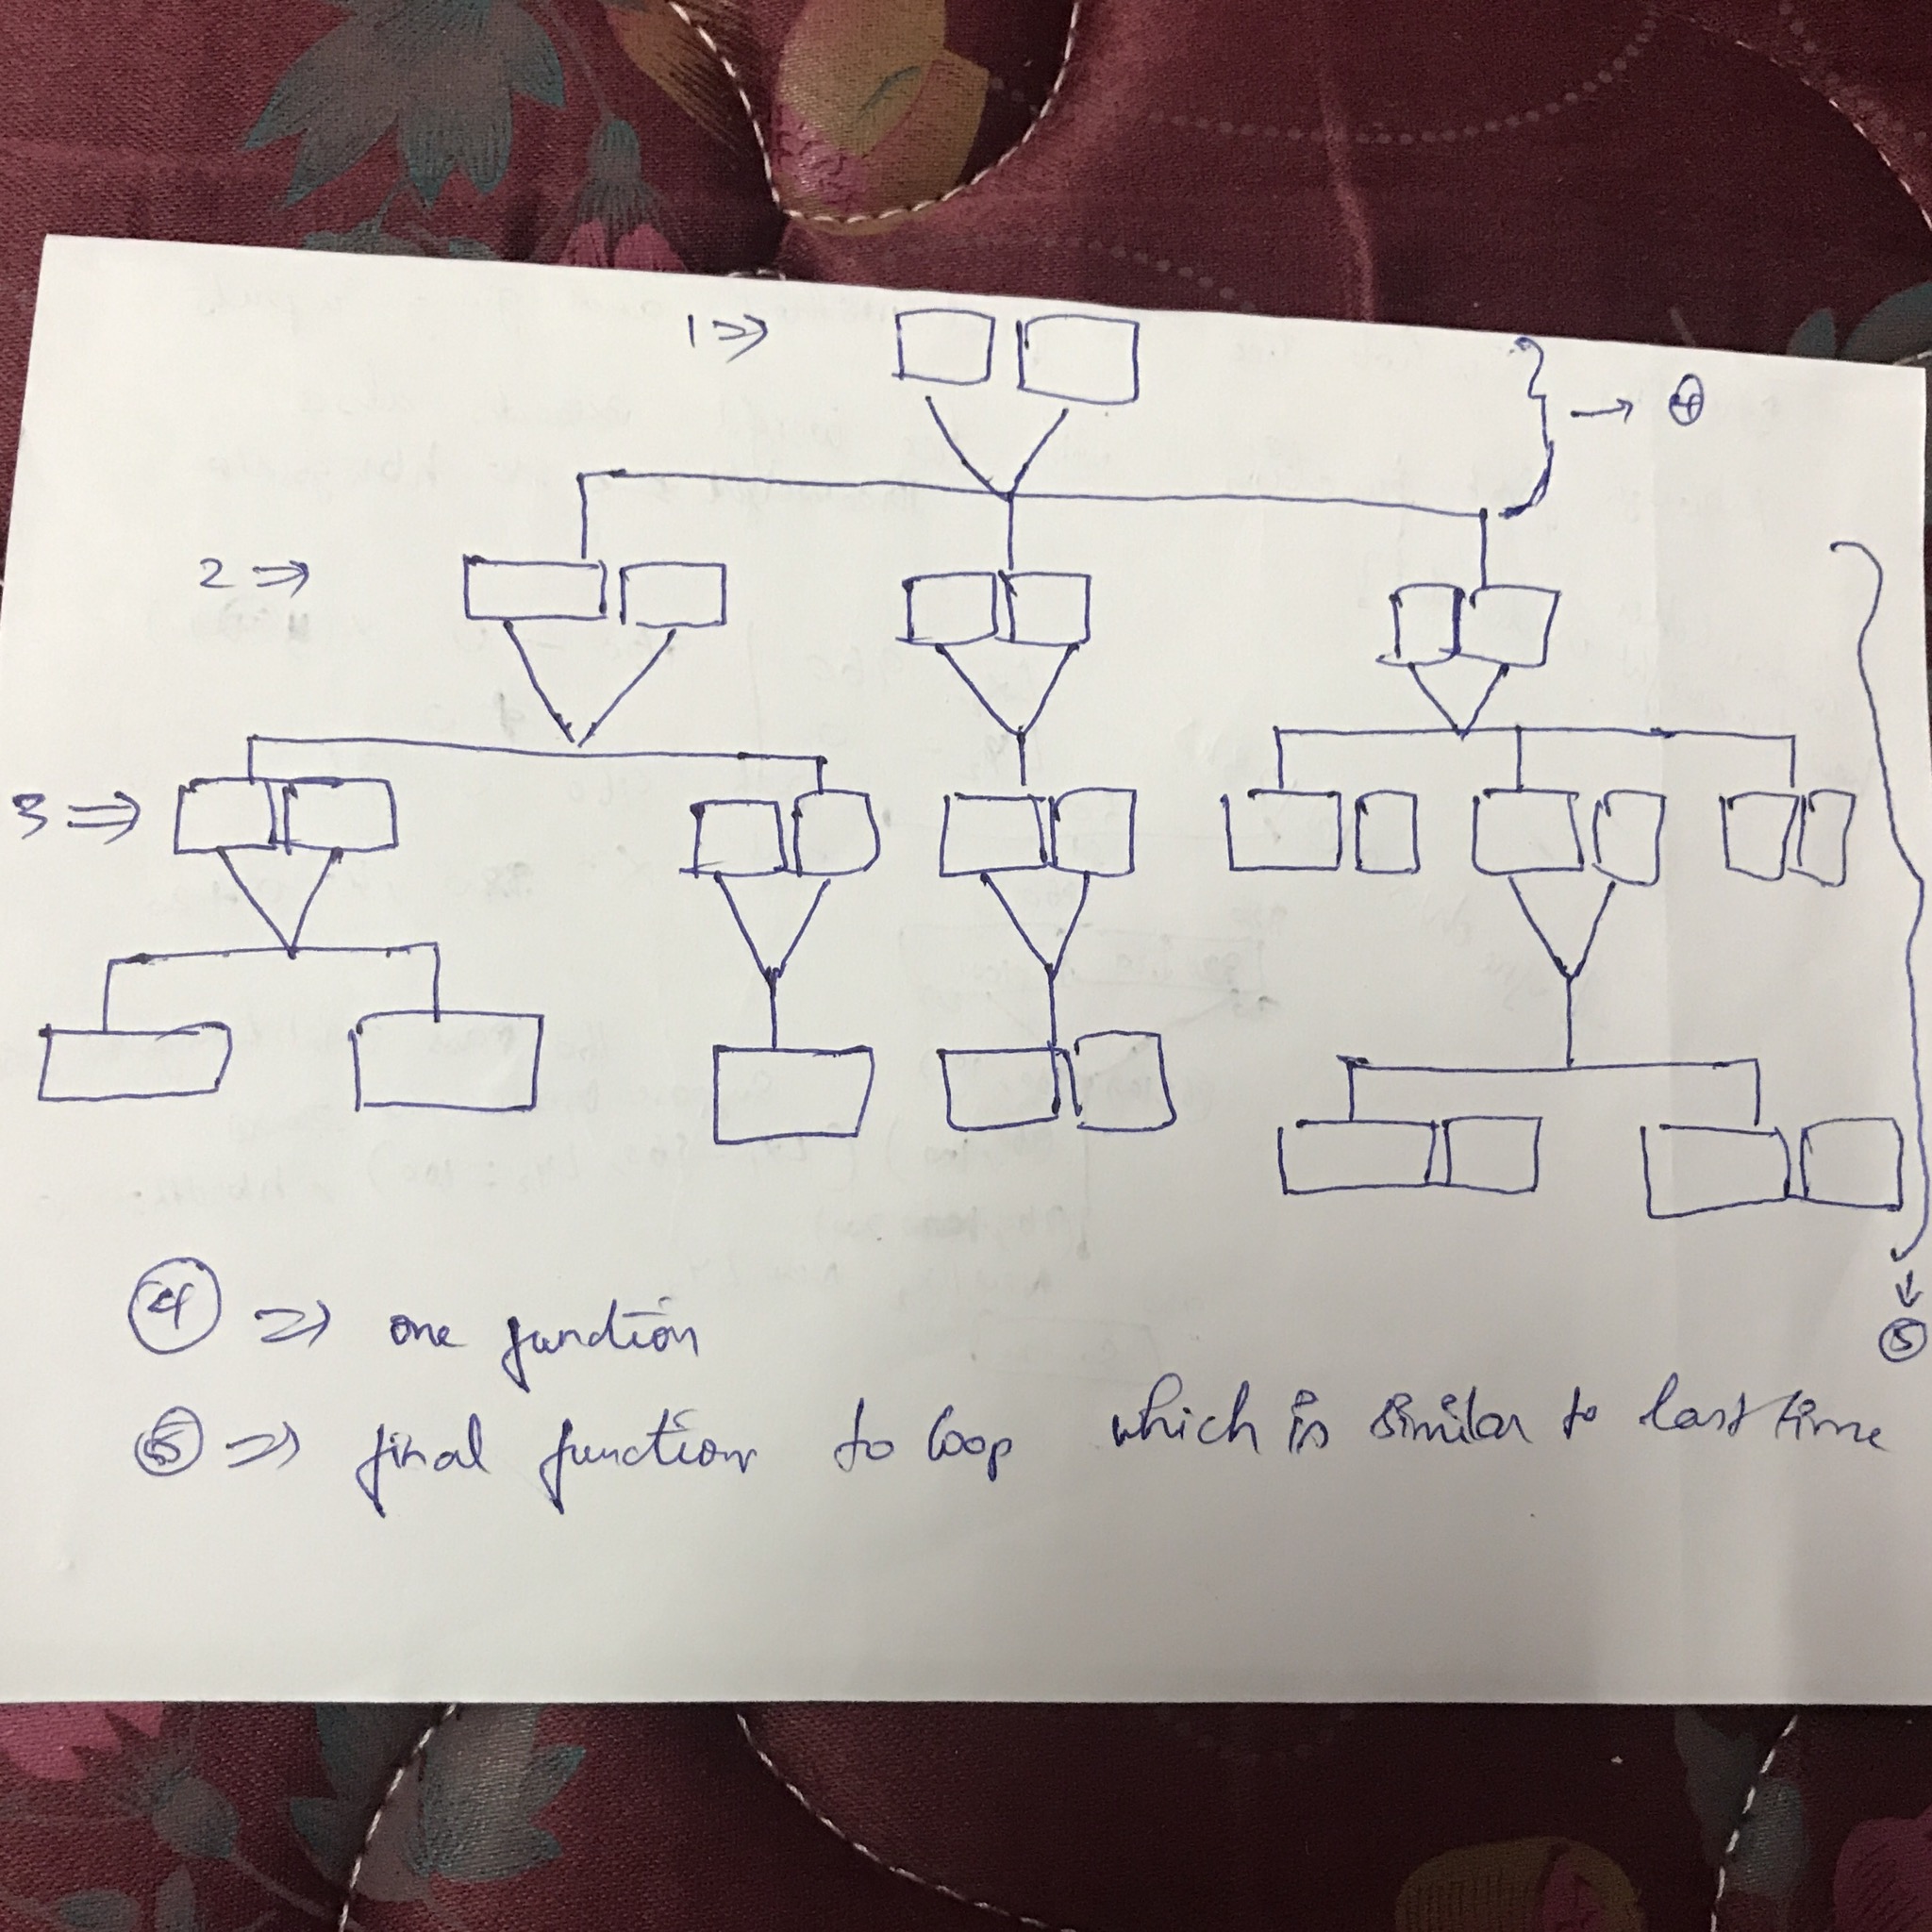 1 ⇒
→ ④
2 ⇒
3 ⇒
④ ⇒ one function
⑤
⑤ ⇒ final function to loop which is similar to last time